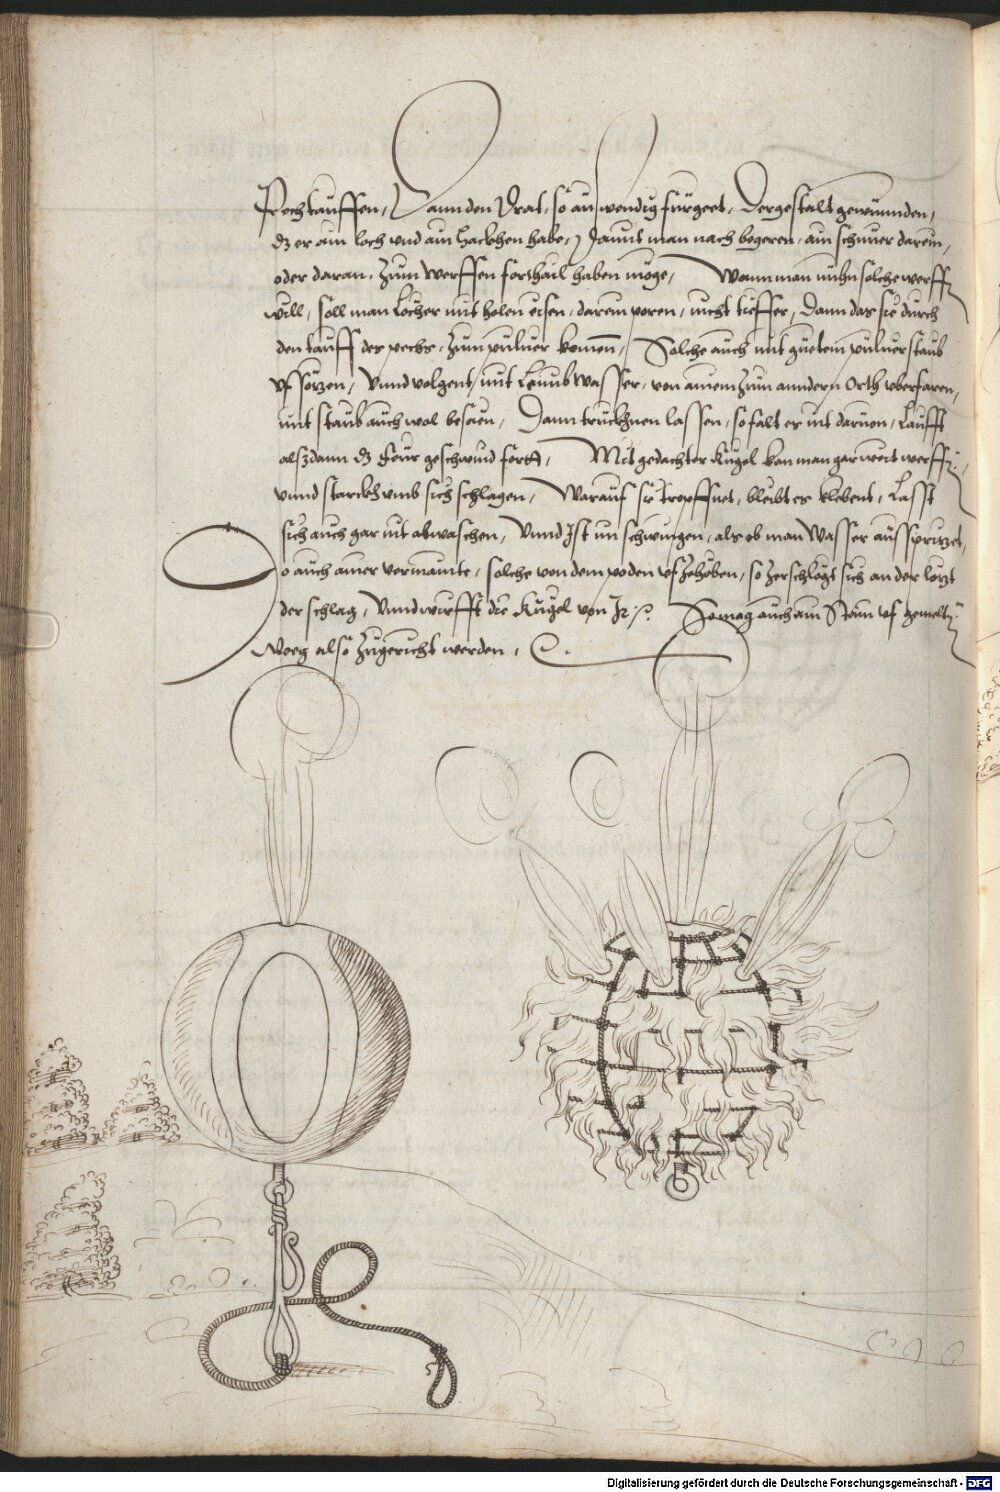 Pech tauffen, Dann den Drat, so außwendig fürgeet, dergestalt gewunnden,
dz er ain loch und ain hackhen habe, damit man nach begeren, ain schnuer darein,
oder daran, zum werffen forthail haben möge, Wann man nuhn solche werffen
will, soll man Löcher mit holen eisen, darein poren, nicht tieffer, dann das sie durch
den tauff des pechs, zum pulver komen, Solche auch mit guetem pulver staub
und volgent, mit wasser, von ainem zum anndern Orth uberfaren,
mit staub auch wol besäen, Dann truckhnen lassen, so falt er nit darvon, Laufft
alßdann dz feur geschwind fortt, Mit gedachter Kugel kan man gar weit werffen,
unnd starckh umb sich schlagen, Warauf sie tropffnet, bleibt es klebent, Lasst
sich auch gar nit abwaschen, Unnd ist im schwingen, als ob man Wasser aussspritzet,
So auch ainer vermainte, solche von dem poden ufzehöben, so zerschlegt sich an der letzt
der schlag, Unnd würfft die Kugel von Ir. So mag auch ain Stain uf gemelte
Weeg also zugericht werden,
Digitalisierung gefördert durch die Deutsche Forschungsgemeinschaft - DFG